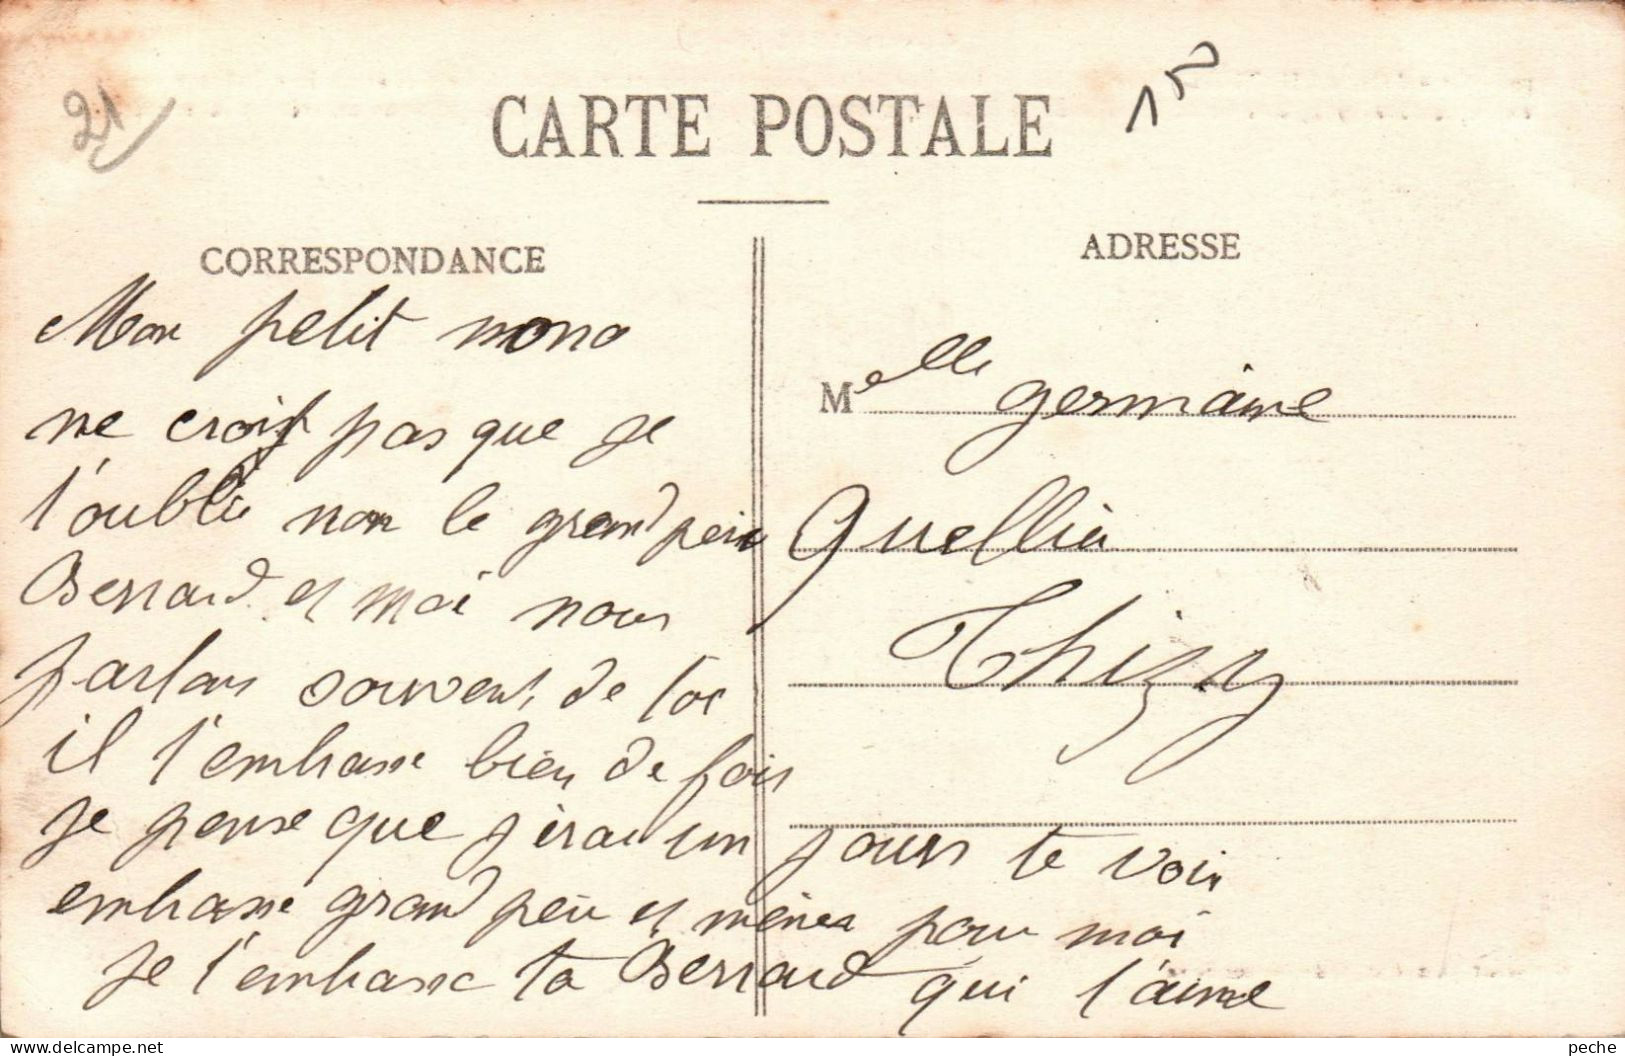 21
CARTE POSTALE
CORRESPONDANCE
Mon petit nono
ne crois pas que je
t'oublie non le grand père
Bernard et moi nous
parlons souvent de toi
il t'embrasse bien de fois
je pense que j'irai un jours te voir
embrasse grand père et mères pour moi
je t'embrasse ta Bernard qui t'aime
ADRESSE
Melle germaine
Quellier
Thizy
peche